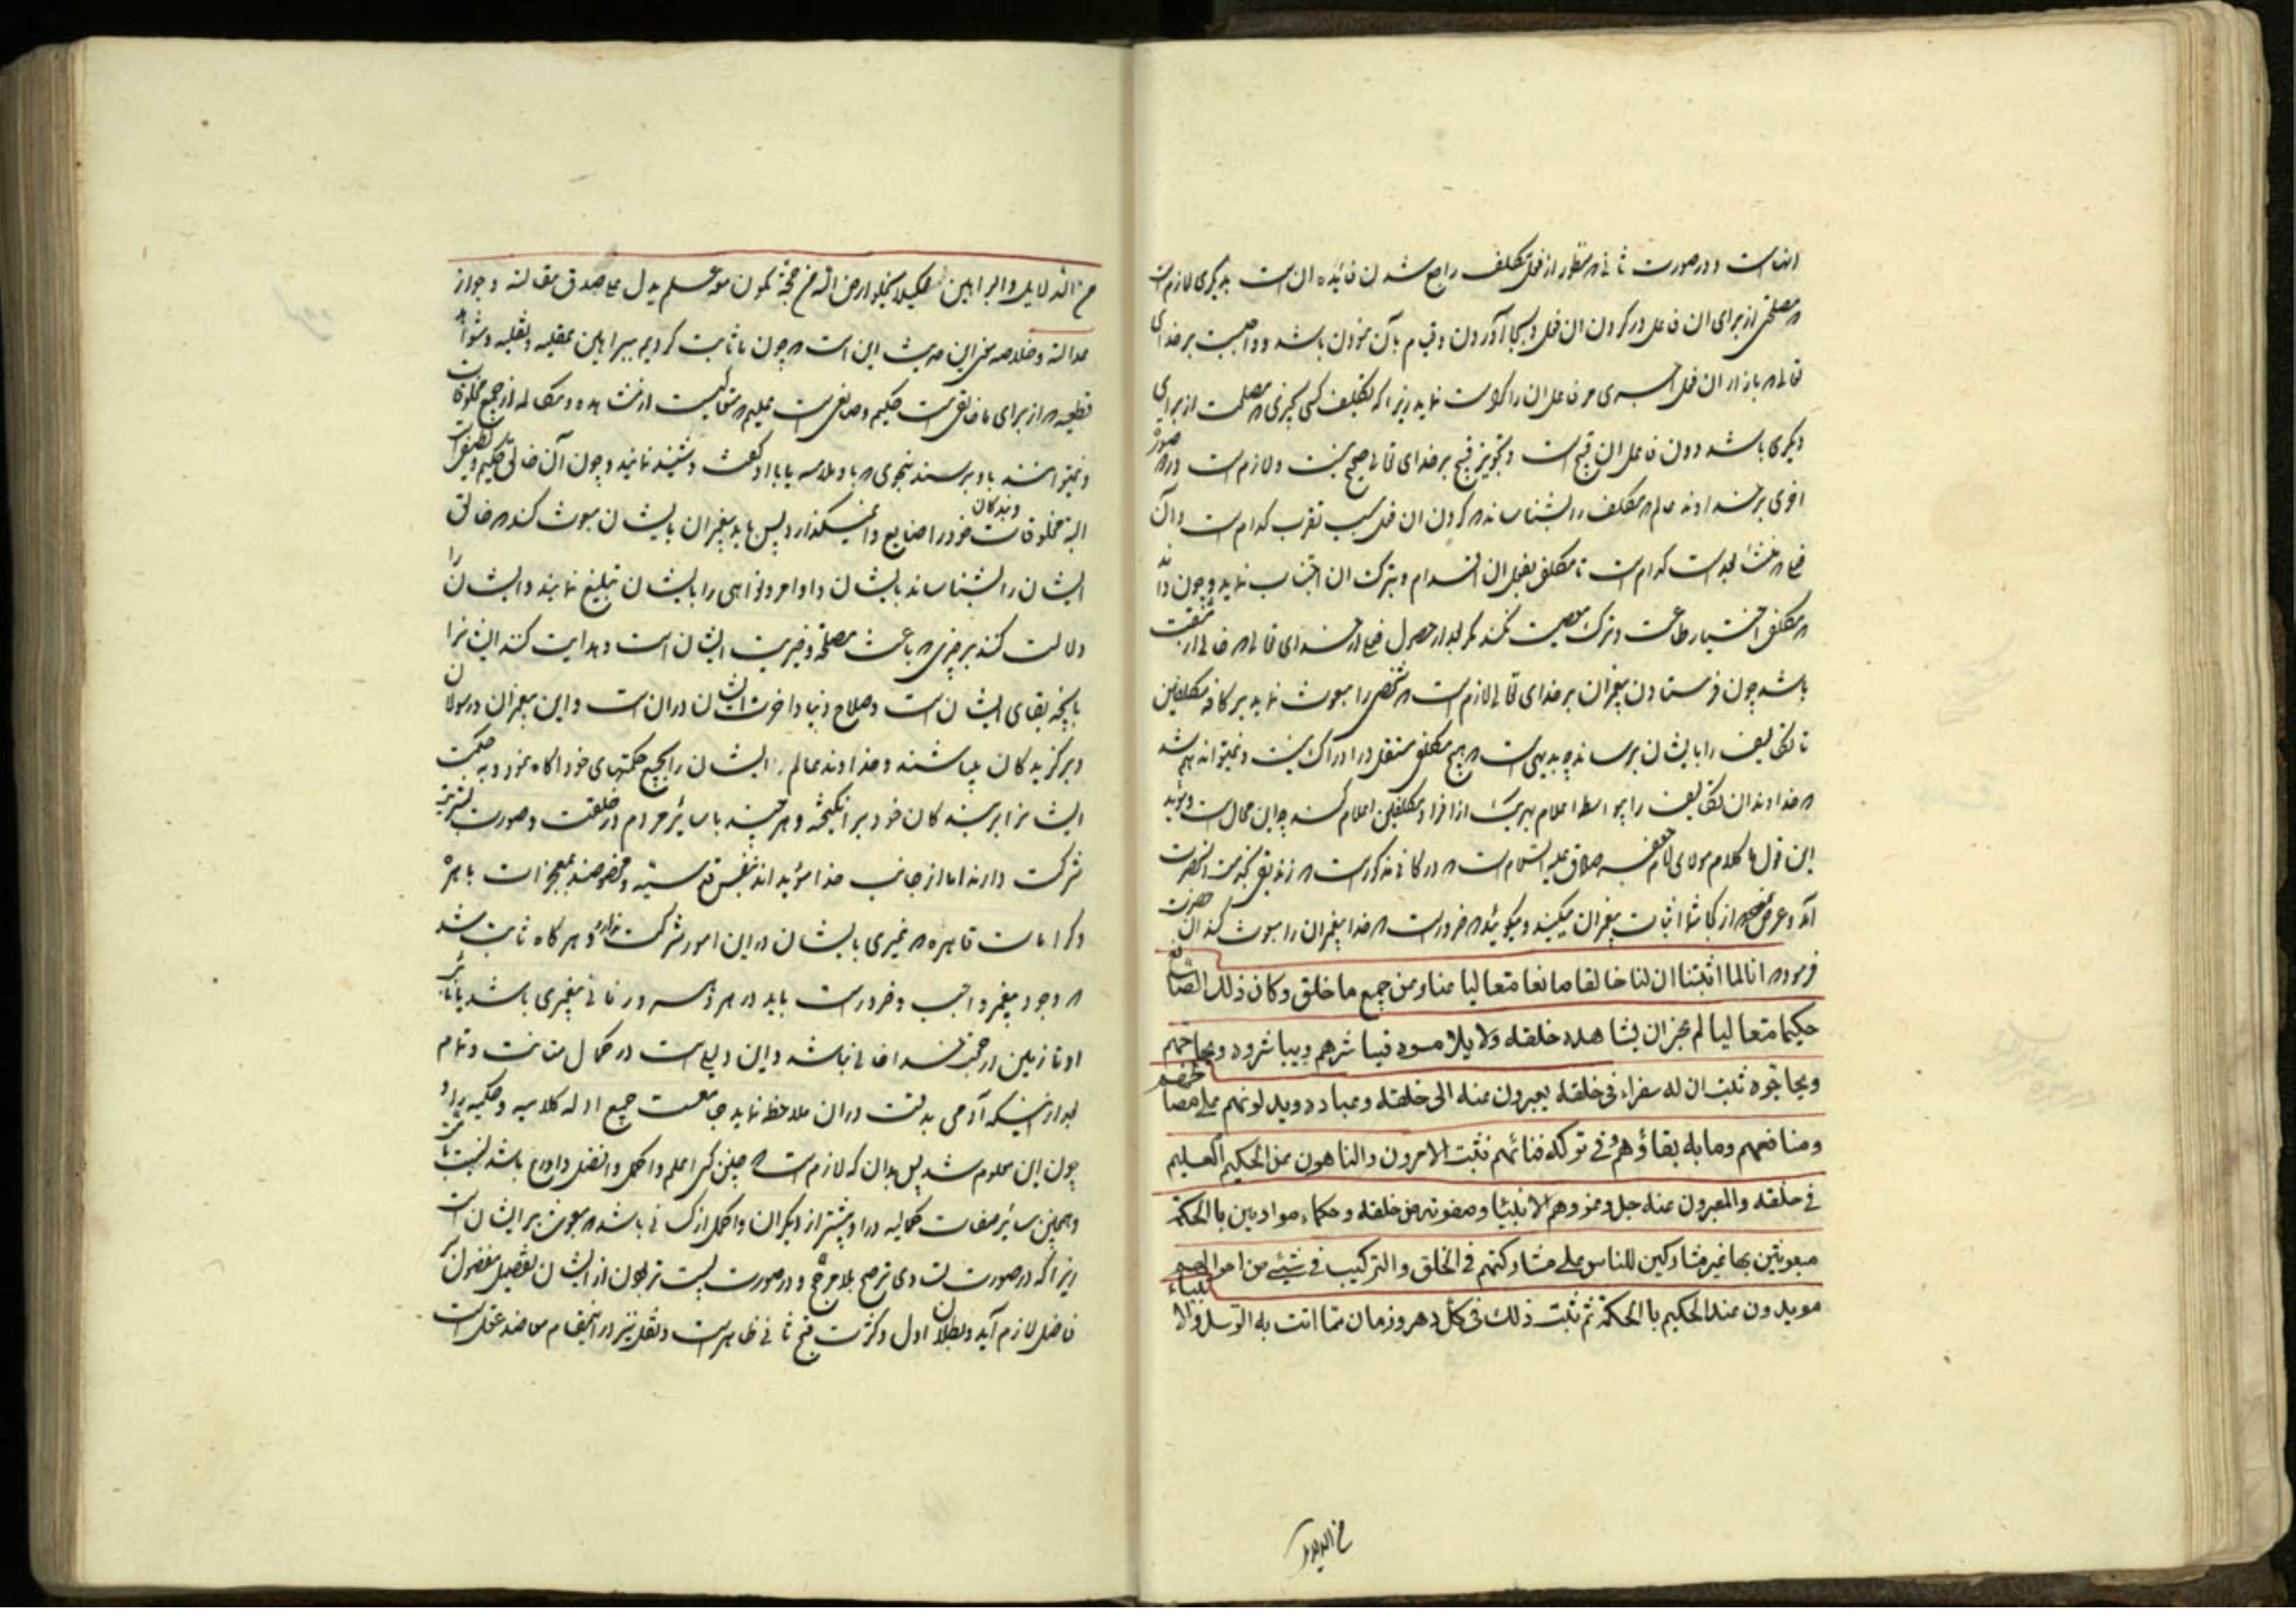 انهاست و در صورت ثانی منظور از فعل تکلیف راجع شدن فائده ان است بدیگری لازم است
مصلحتی از برای ان فاعل در کردن ان فعل و بجا آوردن و قیام بآن نمودن باشد و واجبست بر خدای
تعالی بازاء ان فعل مر فاعل ان را نماید زیرا که تکلیف کسی بچیزی مصلحت از برای
دیگری باشد دون فاعل ان قبیح است و تجویز قبیح بر خدای تعالی صحیح نیست و لازم است در صورة
اخری بر خداوند عالم مکلف را بشناساند کردن ان فعل سبب تقرب کدام است و آن
فعل منشأ بعد است کدام است تا مکلف بفعل ان اقدام و بترک ان اجتناب نماید و چون
مکلف اختیار طاعت و ترک معصیت نمیکند مگر بعد از حصول از خدای تعالی
باشد چون فرستادن پیغمبران بر خدای تعالی لازم است شخصی را مبعوث نماید بر کافه مکلفین
تا تکالیف را بایشان برساند چه بدیهی است هیچ مکلفی مستقل در ادراک نیست و نمیتواند هم شد
خداوند ان تکالیف را بیواسطه اعلام بهر یک از افراد مکلفین اعلام کند چه این محال است و مؤید
این قول ما کلام مولای امام جعفر صادق علیه السلام است در کافی مذکور است زندیقی بخدمت انحضرت
آمد و عرض نمود از کجا شما اثبات پیغمبران میکنید و میگوئید ضرور است خدا پیغمبران را مبعوث کند ان حضرت
فرمود انا لما اثبتنا ان لنا خالقا صانعا متعالیا عنا و عن جمیع ما خلق و کان ذلک الصانع
حکیما متعالیا لم یجز ان یشاهده خلقه ولا یلامسوه فیباشرهم ویباشروه ویحاجهم
ویحاجوه ثبت ان له سفراء فی خلقه یعبرون عنه الی خلقه وعباده ویدلونهم علی مصالحهم
ومنافعهم وما به بقاؤهم وفی ترکه فنائهم فثبت الامرون والناهون عن الحکیم العلیم
فی خلقه والمعبرون عنه جل وعز وهم الانبیاء وصفوته من خلقه وحکماء مؤادبین بالحکمة
مبعوثین بها غیر مشارکین للناس علی مشارکتهم فی الخلق والترکیب فی شیئ من احوالهم
مویدون عند الحکیم باالحکمة ثم ثبت ذلک فی کل دهر وزمان مما اتت به الرسل والانبیاء
من الدلایل
من الدلایل والبراهین لکیلا یخلو ارض الله من حجة یکون معه علم یدل علی صدق مقالته و جواز
عدالته و خلاصه معنی این حدیث این است چون ما ثابت کردیم ببراهین عقلیه و نقلیه و شواهد
قطعیه از برای ما خالقی است حکیم و صانعی است علیم متعالیست از مشاهده و مکالمه از جمیع مخلوقات
و نمیتوانند باو برسند بنحوی باو ملامسه یا باو گفت و شنید نمایند و چون آن خالق حکیم و لطیف است
البته مخلوقات و بندگان خود را ضایع وا نمیگذارد پس باید پیغمبران بایشان مبعوث کند خالق
ایشان را بشناساند بایشان و اوامر و نواهی را بایشان تبلیغ نمایند و ایشان را
دلالت کنند بر چیزی باعث مصلحت و خیریت ایشان است و هدایت کنند ایشانرا
بانچه بقای ایشان است و صلاح دنیا و اخرت ایشان دران است و این پیغمبران و رسولان
و برگزیدگان میباشند و خداوند عالم ایشان را بجمیع حکمتهای خود اگاه نمود و به حکمت
ایشانرا بر بندگان خود برانگیخته و هر چند با سائر مردم در خلقت و صورت بشریت
شرکت دارند اما از جانب خدا مؤید اند بنفس قدسیه و مخصوصند بمعجزات باهره
و کرامات قاهره غیری بایشان در این امور شرکت ندارد و هر گاه ثابت شد
وجود پیغمبر واجب و ضرور است باید در هر دهر و زمانی پیغمبری باشد یا نائب
او تا زمین از حجت خدا خالی نباشد و این دلیلی است در کمال متانت و تمام
بعد از اینکه آدمی بدقت دران ملاحظه نماید جامعست جمیع ادله کلامیه و حکمیه را
چون این معلوم شد پس بدان که لازم است چنین کسی اعلم و اکمل و افضل و اورع باشد نسبت بامت
و همچنین سائر صفات کمالیه در او بیشتر از دیگران و اکمل از کسانی باشد مبعوث بر ایشان است
زیرا که در صورت تساوی ترجیح بلا مرجح و در صورت پست تر بودن از ایشان تفضیل مفضول بر
فاضل لازم آید و بطلان اول و کثرت قبح ثانی ظاهر است و نقل نیز در اینمقام معاضد عقل است